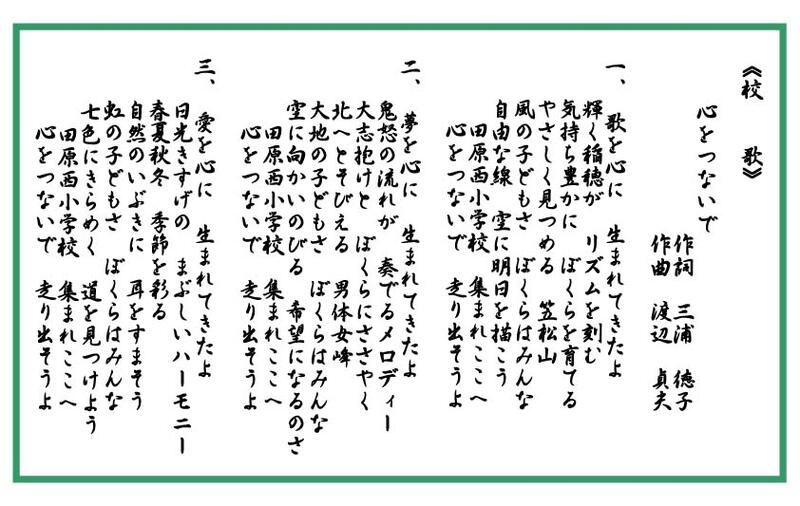 《校 歌》
心をつないで
作詞 三浦 徳子
作曲 渡辺 貞夫
一、歌を心に 生まれてきたよ
輝く稲穂が リズムを刻む
気持ち豊かに ぼくらを育てる
やさしく見つめる 笠松山
風の子どもさ ぼくらはみんな
自由な線 空に明日を描こう
田原西小学校 集まれここへ
心をつないで 走り出そうよ
二、夢を心に 生まれてきたよ
鬼怒の流れが 奏でるメロディー
大志抱けと ぼくらにささやく
北へとそびえる 男体女峰
大地の子どもさ ぼくらはみんな
空に向かいのびる 希望になるのさ
田原西小学校 集まれここへ
心をつないで 走り出そうよ
三、愛を心に 生まれてきたよ
日光きすげの まぶしいハーモニー
春夏秋冬 季節を彩る
自然のいぶきに 耳をすまそう
虹の子どもさ ぼくらはみんな
七色にきらめく 道を見つけよう
田原西小学校 集まれここへ
心をつないで 走り出そうよ